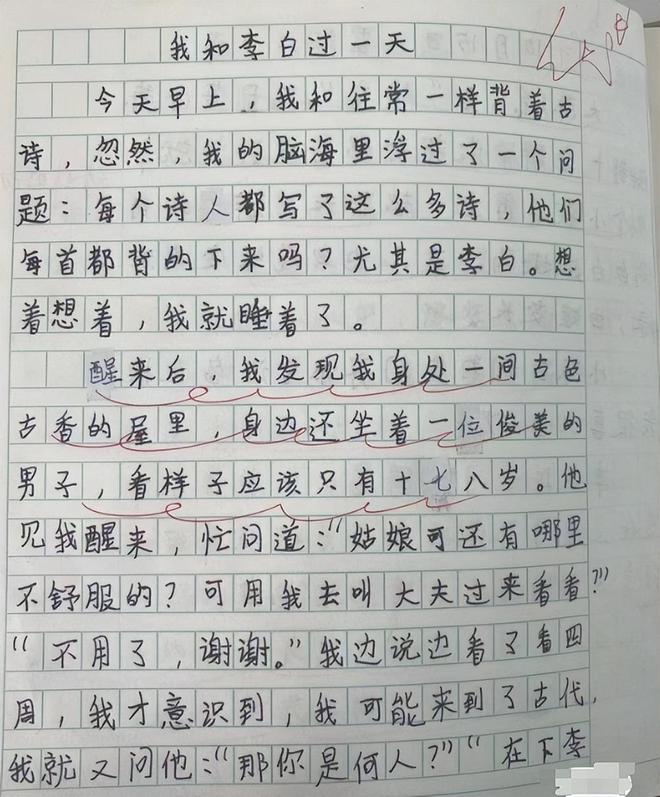 我和李白过一天
今天早上，我和往常一样背着古
诗，忽然，我的脑海里浮过了一个问
题：每个诗人都写了这么多诗，他们
每首都背的下来吗？尤其是李白。想
着想着，我就睡着了。
醒来后，我发现我身处一间古色
古香的屋里，身边还坐着一位俊美的
男子，看样子应该只有十七八岁。他
见我醒来，忙问道：“姑娘可还有哪里
不舒服的？可用我去叫大夫过来看看？”
“不用了，谢谢。”我边说边看了看四
周，我才意识到，我可能来到了古代，
我就又问他：“那你是何人？”“在下李